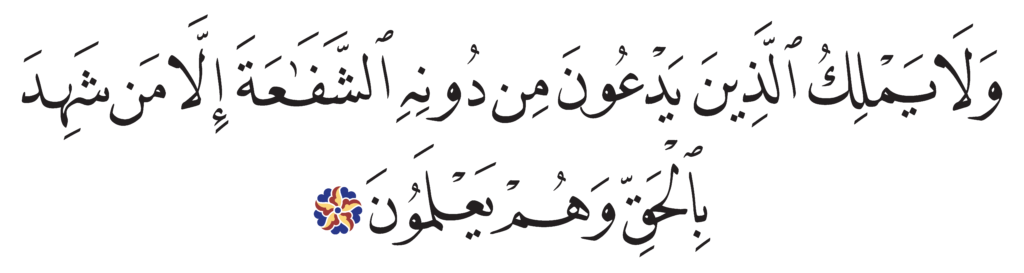 وَلَا يَمْلِكُ ٱلَّذِينَ يَدْعُونَ مِن دُونِهِ ٱلشَّفَٰعَةَ إِلَّا مَن شَهِدَ
بِٱلْحَقِّ وَهُمْ يَعْلَمُونَ